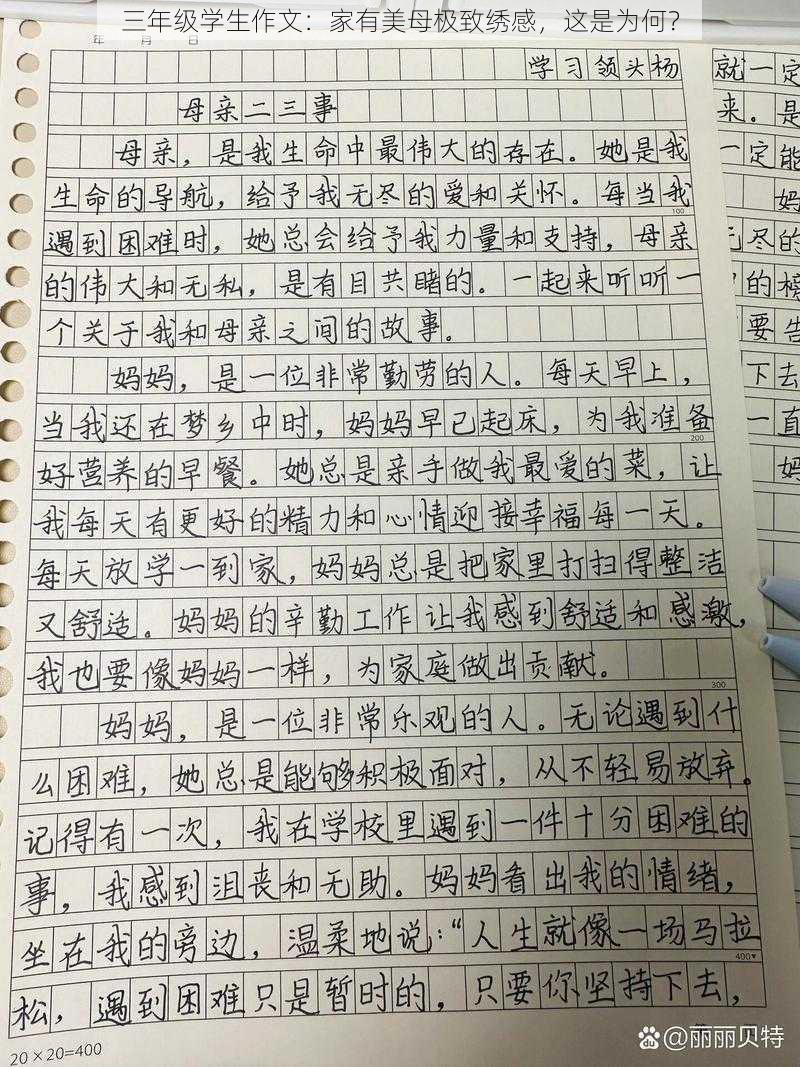 三年级学生作文：家有美母极致绣感，这是为何？
年 月 日
学习领头杨
母亲二三事
母亲，是我生命中最伟大的存在。她是我
生命的导航，给予我无尽的爱和关怀。每当我
100
遇到困难时，她总会给予我力量和支持，母亲
的伟大和无私，是有目共睹的。一起来听听一
个关于我和母亲之间的故事。
妈妈，是一位非常勤劳的人。每天早上，
当我还在梦乡中时，妈妈早已起床，为我准备
200
好营养的早餐。她总是亲手做我最爱的菜，让
我每天有更好的精力和心情迎接幸福每一天。
每天放学一到家，妈妈总是把家里打扫得整洁
又舒适。妈妈的辛勤工作让我感到舒适和感激，
我也要像妈妈一样，为家庭做出贡献。
300
妈妈，是一位非常乐观的人。无论遇到什
么困难，她总是能够积极面对，从不轻易放弃。
记得有一次，我在学校里遇到一件十分困难的
事，我感到沮丧和无助。妈妈看出我的情绪，
坐在我的旁边，温柔地说：“人生就像一场马拉
400
松，遇到困难只是暂时的，只要你坚持下去，
20×20=400
就一定
来。是
一定能
妈
无尽的
的榜
要告
下去
一直
妈
Bai百度 @丽丽贝特